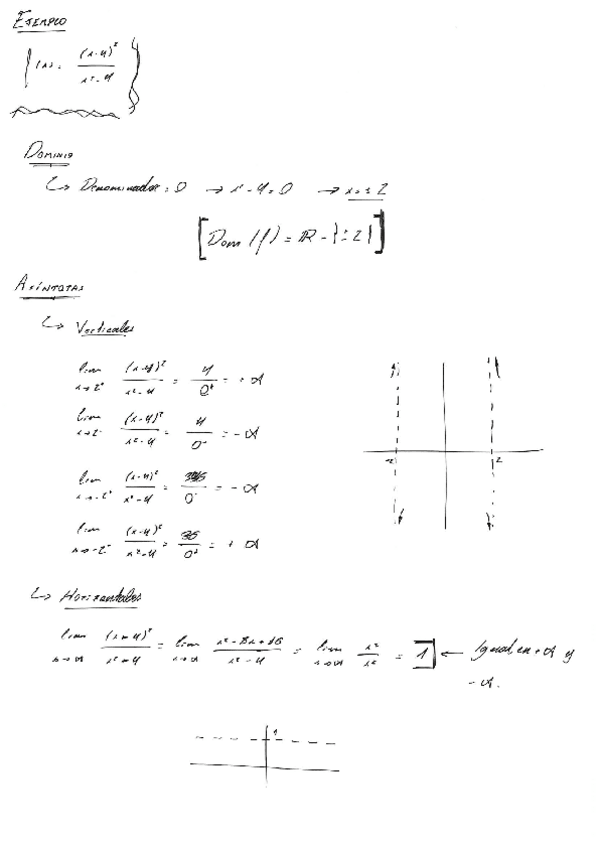 EJEMPLO
f(x) = (x-4)² / x²-4
DOMINIO
↳ Denominador = 0 → x²-4=0 → x=±2
[Dom(f) = ℝ - {±2}]
ASÍNTOTAS
↳ Verticales
lim x→2⁺ (x-4)² / x²-4 = 4 / 0⁺ = +∞
lim x→2⁻ (x-4)² / x²-4 = 4 / 0⁻ = -∞
-2 2
lim x→-2⁺ (x-4)² / x²-4 = 36 / 0⁻ = -∞
lim x→-2⁻ (x-4)² / x²-4 = 36 / 0⁺ = +∞
↳ Horizontales
lim x→∞ (x-4)² / x²-4 = lim x→∞ x²-8x+16 / x²-4 = lim x→∞ x² / x² = 1 ← Igual en +∞ y
-∞.
1